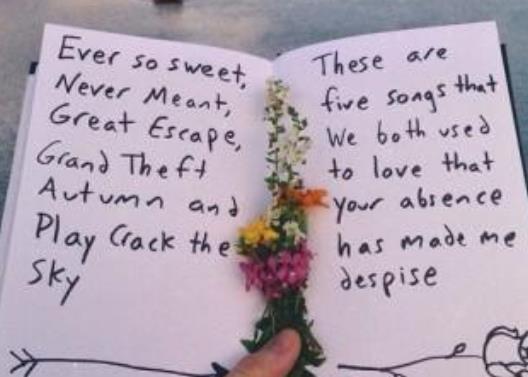 Ever so sweet,
Never Meant,
Great Escape,
Grand Theft
Autumn and
Play Crack the
Sky
These are
five songs that
We both used
to love that
your absence
has made me
despise